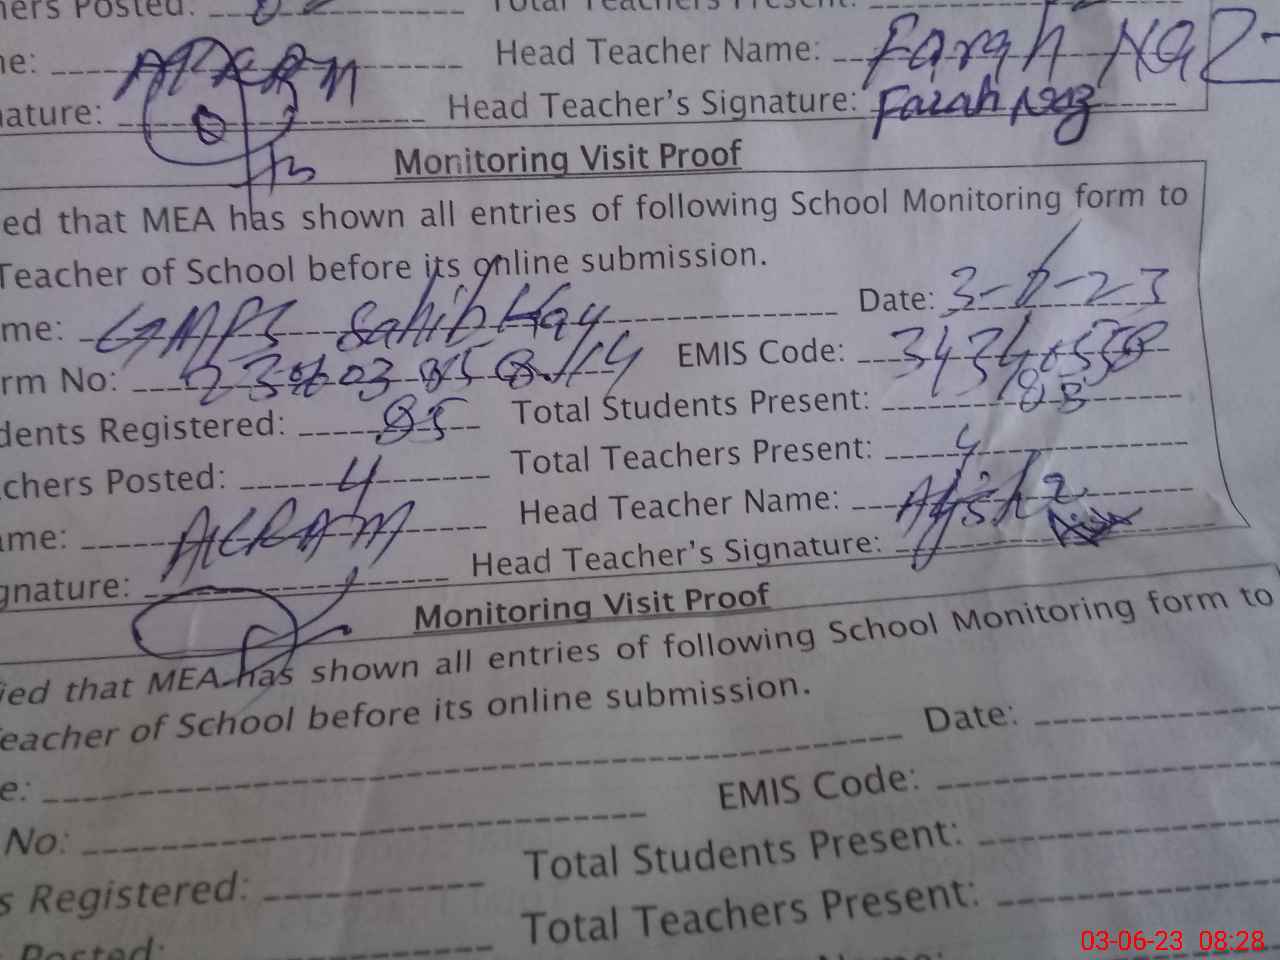 ers Posted: Total Teachers Present:
e: AKRAM Head Teacher Name: Farah NAZ
ature: Head Teacher's Signature: Farah Naz
Monitoring Visit Proof
ed that MEA has shown all entries of following School Monitoring form to
Teacher of School before its online submission.
me: GMPS Sahib Date: 3-6-23
rm No: EMIS Code:
dents Registered: 85 Total Students Present: 83
chers Posted: 4 Total Teachers Present: 4
me: AKRAM Head Teacher Name:
gnature: Head Teacher's Signature:
Monitoring Visit Proof
ied that MEA has shown all entries of following School Monitoring form to
eacher of School before its online submission.
e: Date:
No: EMIS Code:
s Registered: Total Students Present:
Posted: Total Teachers Present:
Name:
03-06-23 08:28